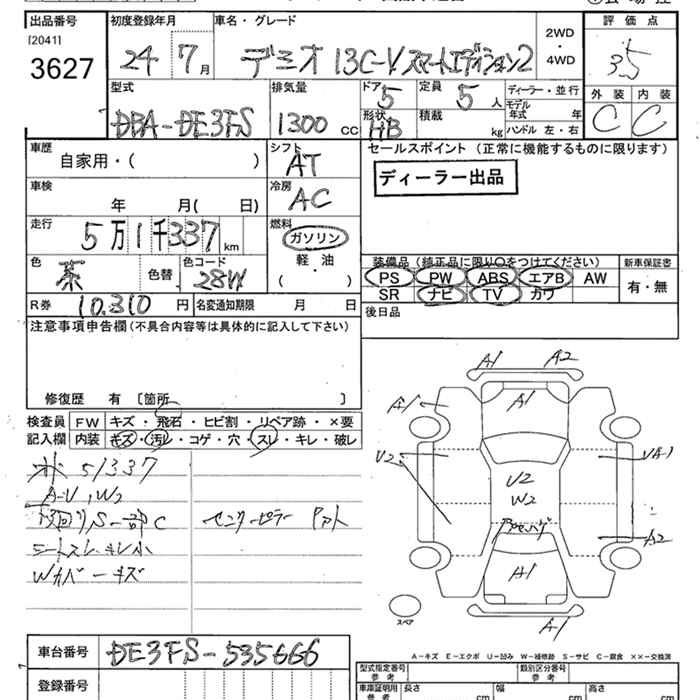 出品番号 初度登録年月 車名・グレード 2WD・4WD 評価点
[2041]
3627 24年 7月 デミオ 13C-V スマートエディション2 3.5
型式 排気量 ドア 5 定員 5人 ディーラー・並行 外装 内装
モデル年式 年
DBA-DE3FS 1300cc 形状 HB 積載 kg ハンドル 左・右 C C
車歴 シフト セールスポイント (正常に機能するものに限ります)
自家用・( ) AT
ディーラー出品
車検 冷房
年 月( 日) AC
走行 燃料
5万1千337km ガソリン
色 色替 色コード 軽・油 装備品 (純正品に限り○をつけてください) 新車保証書
茶 28W ( ) PS PW ABS エアB AW 有・無
SR ナビ TV カワ
R券 10,310円 名変通知期限 月 日 後日品
注意事項申告欄 (不具合内容等は具体的に記入して下さい)
修復歴 有 [箇所 ]
検査員 FW キズ・飛石・ヒビ割・リペア跡・×要
記入欄 内装 キズ・汚レ・コゲ・穴・スレ・キレ・破レ
51337
A-U, W2
下回りS 一部C センターピラー
シートスレ キレ小
Wカバーキズ
A1 A2
A1 A1
U2 UA1
U2
W2
A2
A1
A1
スペア
A-キズ E-エクボ U-凹み W-補修跡 S-サビ C-腐食 XX-交換済
車台番号 DE3FS-535666
登録番号
型式指定番号 参考 類別区分番号 参考
車庫証明用 参考 長さ cm 幅 cm 高さ cm